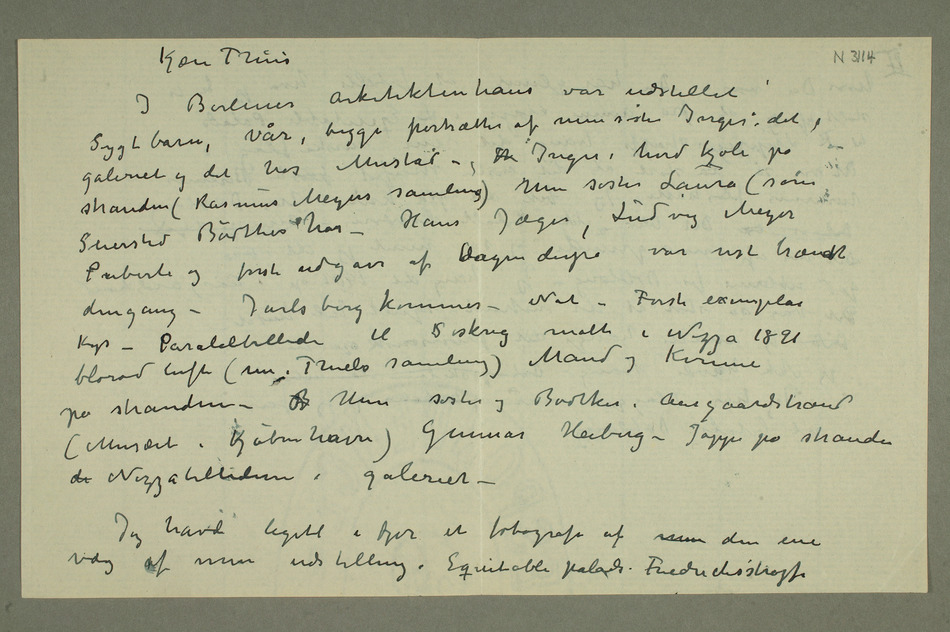 N 3114
Kjære Thiis
I Berliner arkitektenhaus var udstillet
Sygt barn, Vår, begge portrætter af min søster Inger: det i
galeriet og det hos Mustad – Inger i hvid kjole på
stranden (Rasmus Meyers samling) Min søster Laura (som
Bødtker har – Hans Jæger, Ludvig Meyer
Pubertet og første udgave af Dagen derpå var vist brændt
dengang – Jarlsberg kommer – Nat – Første exemplar
Kys – til malt i Nizza 1891
blårød luft (nu i Thiels samling) Mand og Kvinne
på stranden – Min søster og Bødtker i Aasgaardstrand
(Musæet i Kjøbenhavn) Gunnar Heiberg – Jappe på stranden
de Nizzabillederne i galeriet –
Jeg havde ligget i fjor et fotografi af min den ene
væg af min udstilling i Equitable palads. Friedrichstrasse